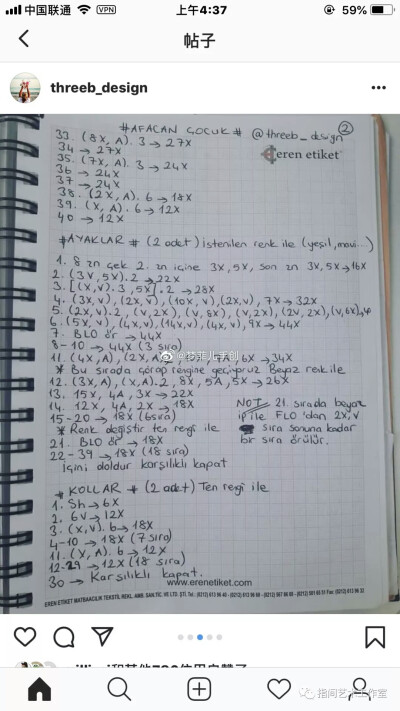 中国联通 VPN 上午4:37 59%
帖子
threeb_design
#AFACAN ÇOCUK# @threeb_design 2
eren etiket
33. (8x, A). 3 → 27X
34 → 27X
35. (7x, A). 3 → 24X
36 → 24X
37 → 24X
38. (2x, A). 6 → 18X
39. (x, A). 6 → 12X
40 → 12X
#AYAKLAR # (2 adet) istenilen renk ile (yeşil, mavi...)
1. 8 zn çek 2. zn içine 3x, 5x, son zn 3x, 5x → 16X
2. (3v, 5x). 2 → 22X
3. [(x,v). 3, 5x]. 2 → 28X
4. (3x,v), (2x,v), (10x,v), (2x,v), 7x → 32X
5. (2x,v). 2, (v,2x), (v,8x), (v,2x), (2v,2x), (v,6x),
6. (5x,v), (4x,v), (14x,v), (4x,v), 9x → 44X
7. BLO ör → 44X
8-10 → 44X (3 sıra)
11. (4x,A), 6x → 34X
@梦菲儿手创
* Bu sırada çorap rengine geçiyoruz Beyaz renk ile
12. (3x, A), (x, A). 2, 8x, 5A, 5x → 26X
13. 15x, 4A, 3x → 22X
14. 12x, 4A, 2x → 18X
15-20 → 18X (6sıra)
* Renk değiştir ten rengi ile
21. BLO ör → 18X
22-39 → 18X (18 sıra)
içini doldur karşılıklı kapat
NOT 21. sırada beyaz
ip ile FLO 'dan 2x, v
sıra sonuna kadar
bir sıra örülür.
* KOLLAR * (2 adet) Ten rengi ile
1. Sh → 6X
2. 6v → 12X
3. (x,v). 6 → 18X
4-10 → 18X (7 sıra)
11. (x, A). 6 → 12X
12-29 → 12X (18 sıra)
30 → Karşılıklı kapat.
www.erenetiket.com
指间艺术工作室